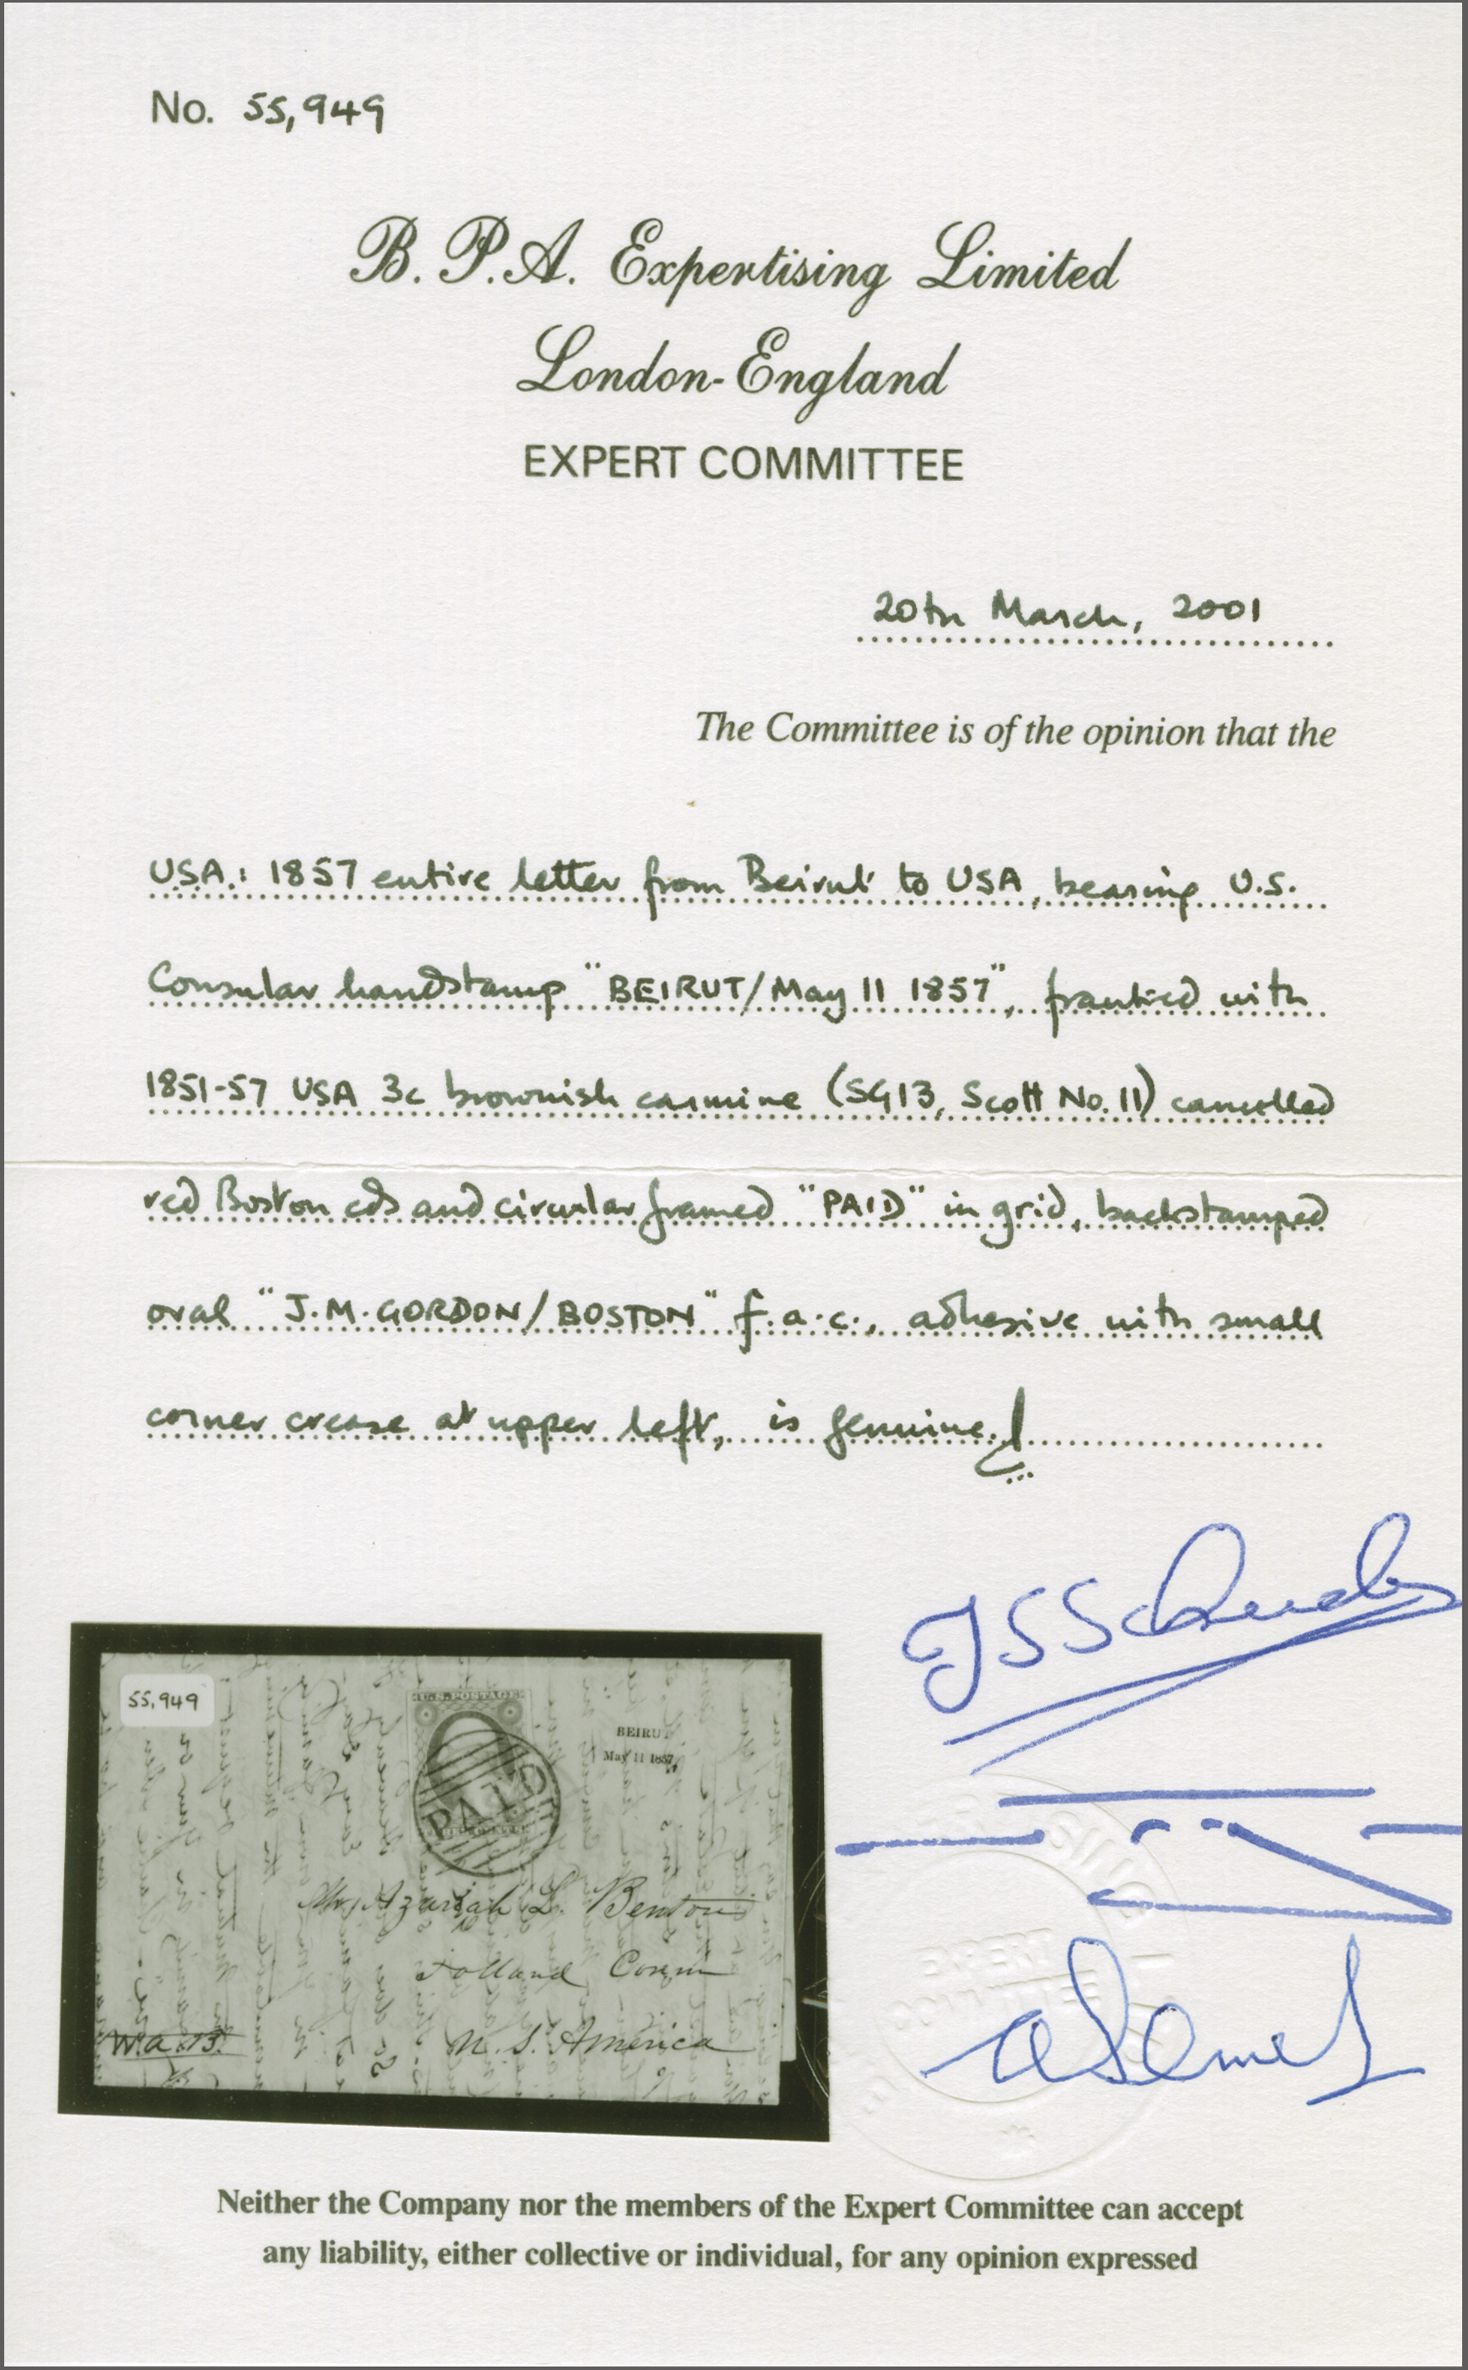 No. 55,949
B. P. A. Expertising Limited
London-England
EXPERT COMMITTEE
20th March, 2001
The Committee is of the opinion that the
USA.: 1857 entire letter from Beirut to USA, bearing U.S.
Consular handstamp "BEIRUT/May 11 1857", franked with
1851-57 USA 3c brownish carmine (SG13, Scott No. 11) cancelled
red Boston cds and circular framed "PAID" in grid, backstamped
oval "J.M. GORDON/BOSTON" f.a.c., adhesive with small
corner crease at upper left, is genuine.
55,949
U.S. POSTAGE
BEIRUT
May 11 1857
PAID
Mr. Azariah L. Benton
Tolland Conn
W.a.B.
U. S. America
EXPERT
COMMITTEE
Neither the Company nor the members of the Expert Committee can accept
any liability, either collective or individual, for any opinion expressed